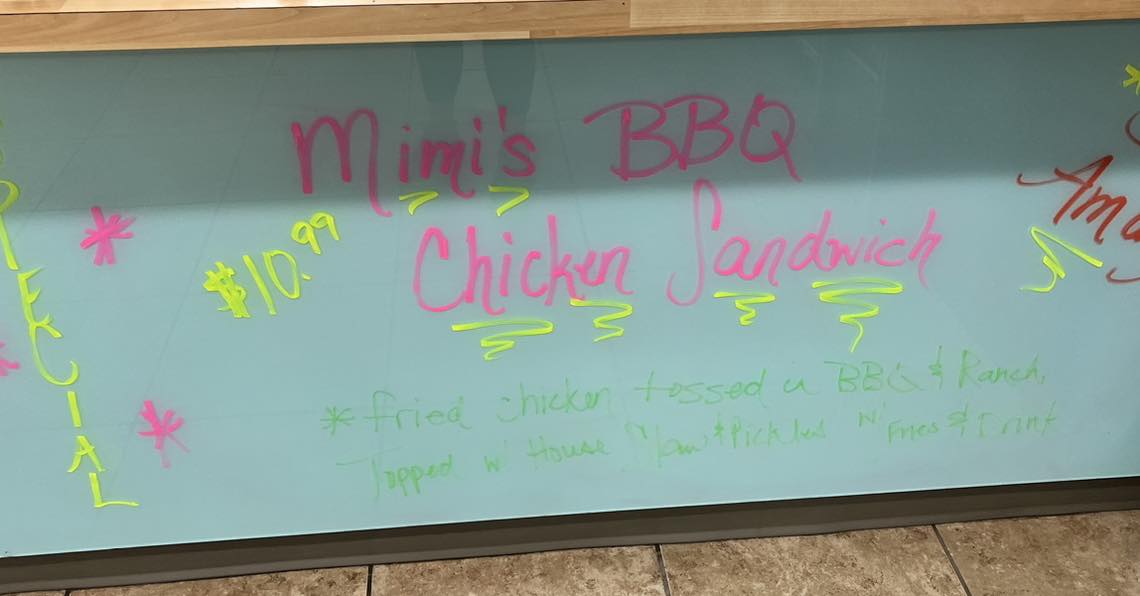 SPECIAL
Mimi's BBQ
$10.99
Chicken Sandwich
*fried chicken tossed in BBQ & Ranch,
Topped w/ House Slaw & Pickles w/ Fries & Drink